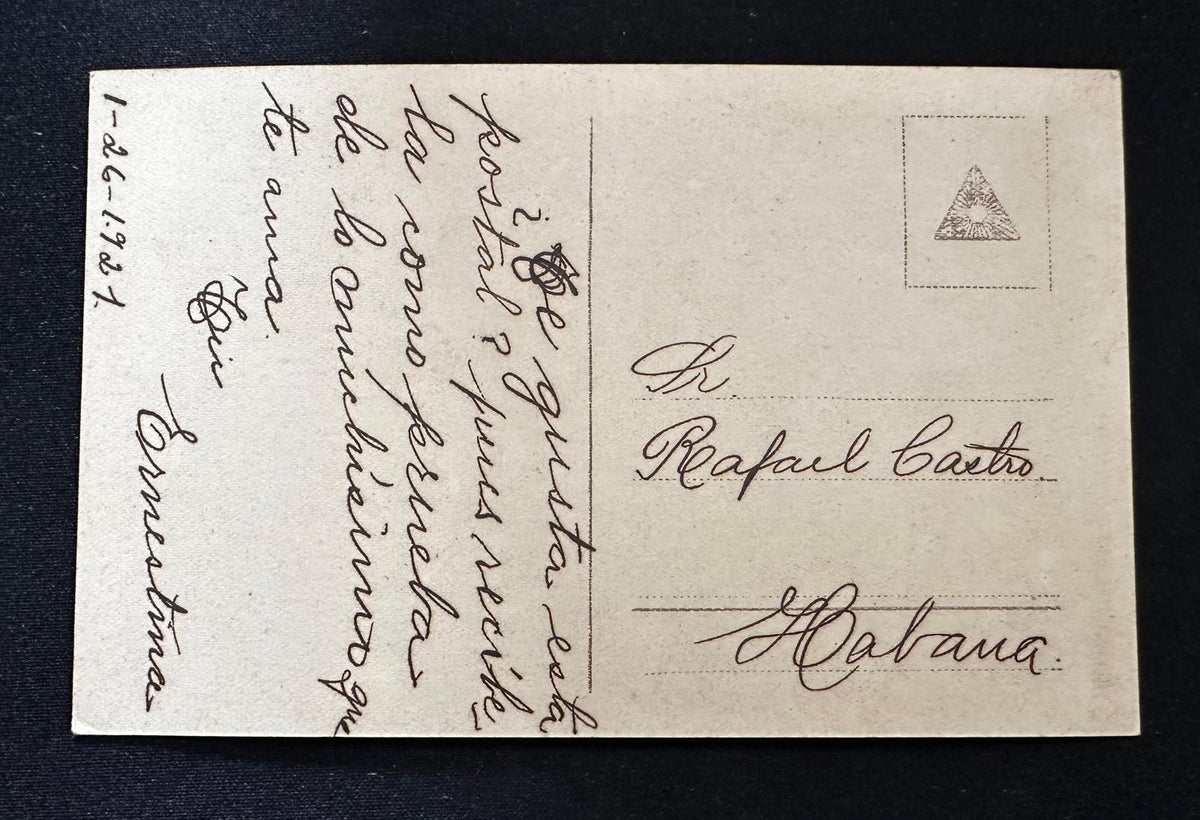 ¿Te gusta esta
postal? pues recibe-
la como prueba
de lo muchisimo que
te ama.
Tu
Ernestina
1-26-1921.
Sr
Rafael Castro.
Habana.